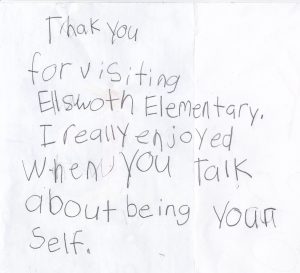 Thak you
for visiting
Ellswoth Elementary.
I really enjoyed
when you Talk
about being your
self.